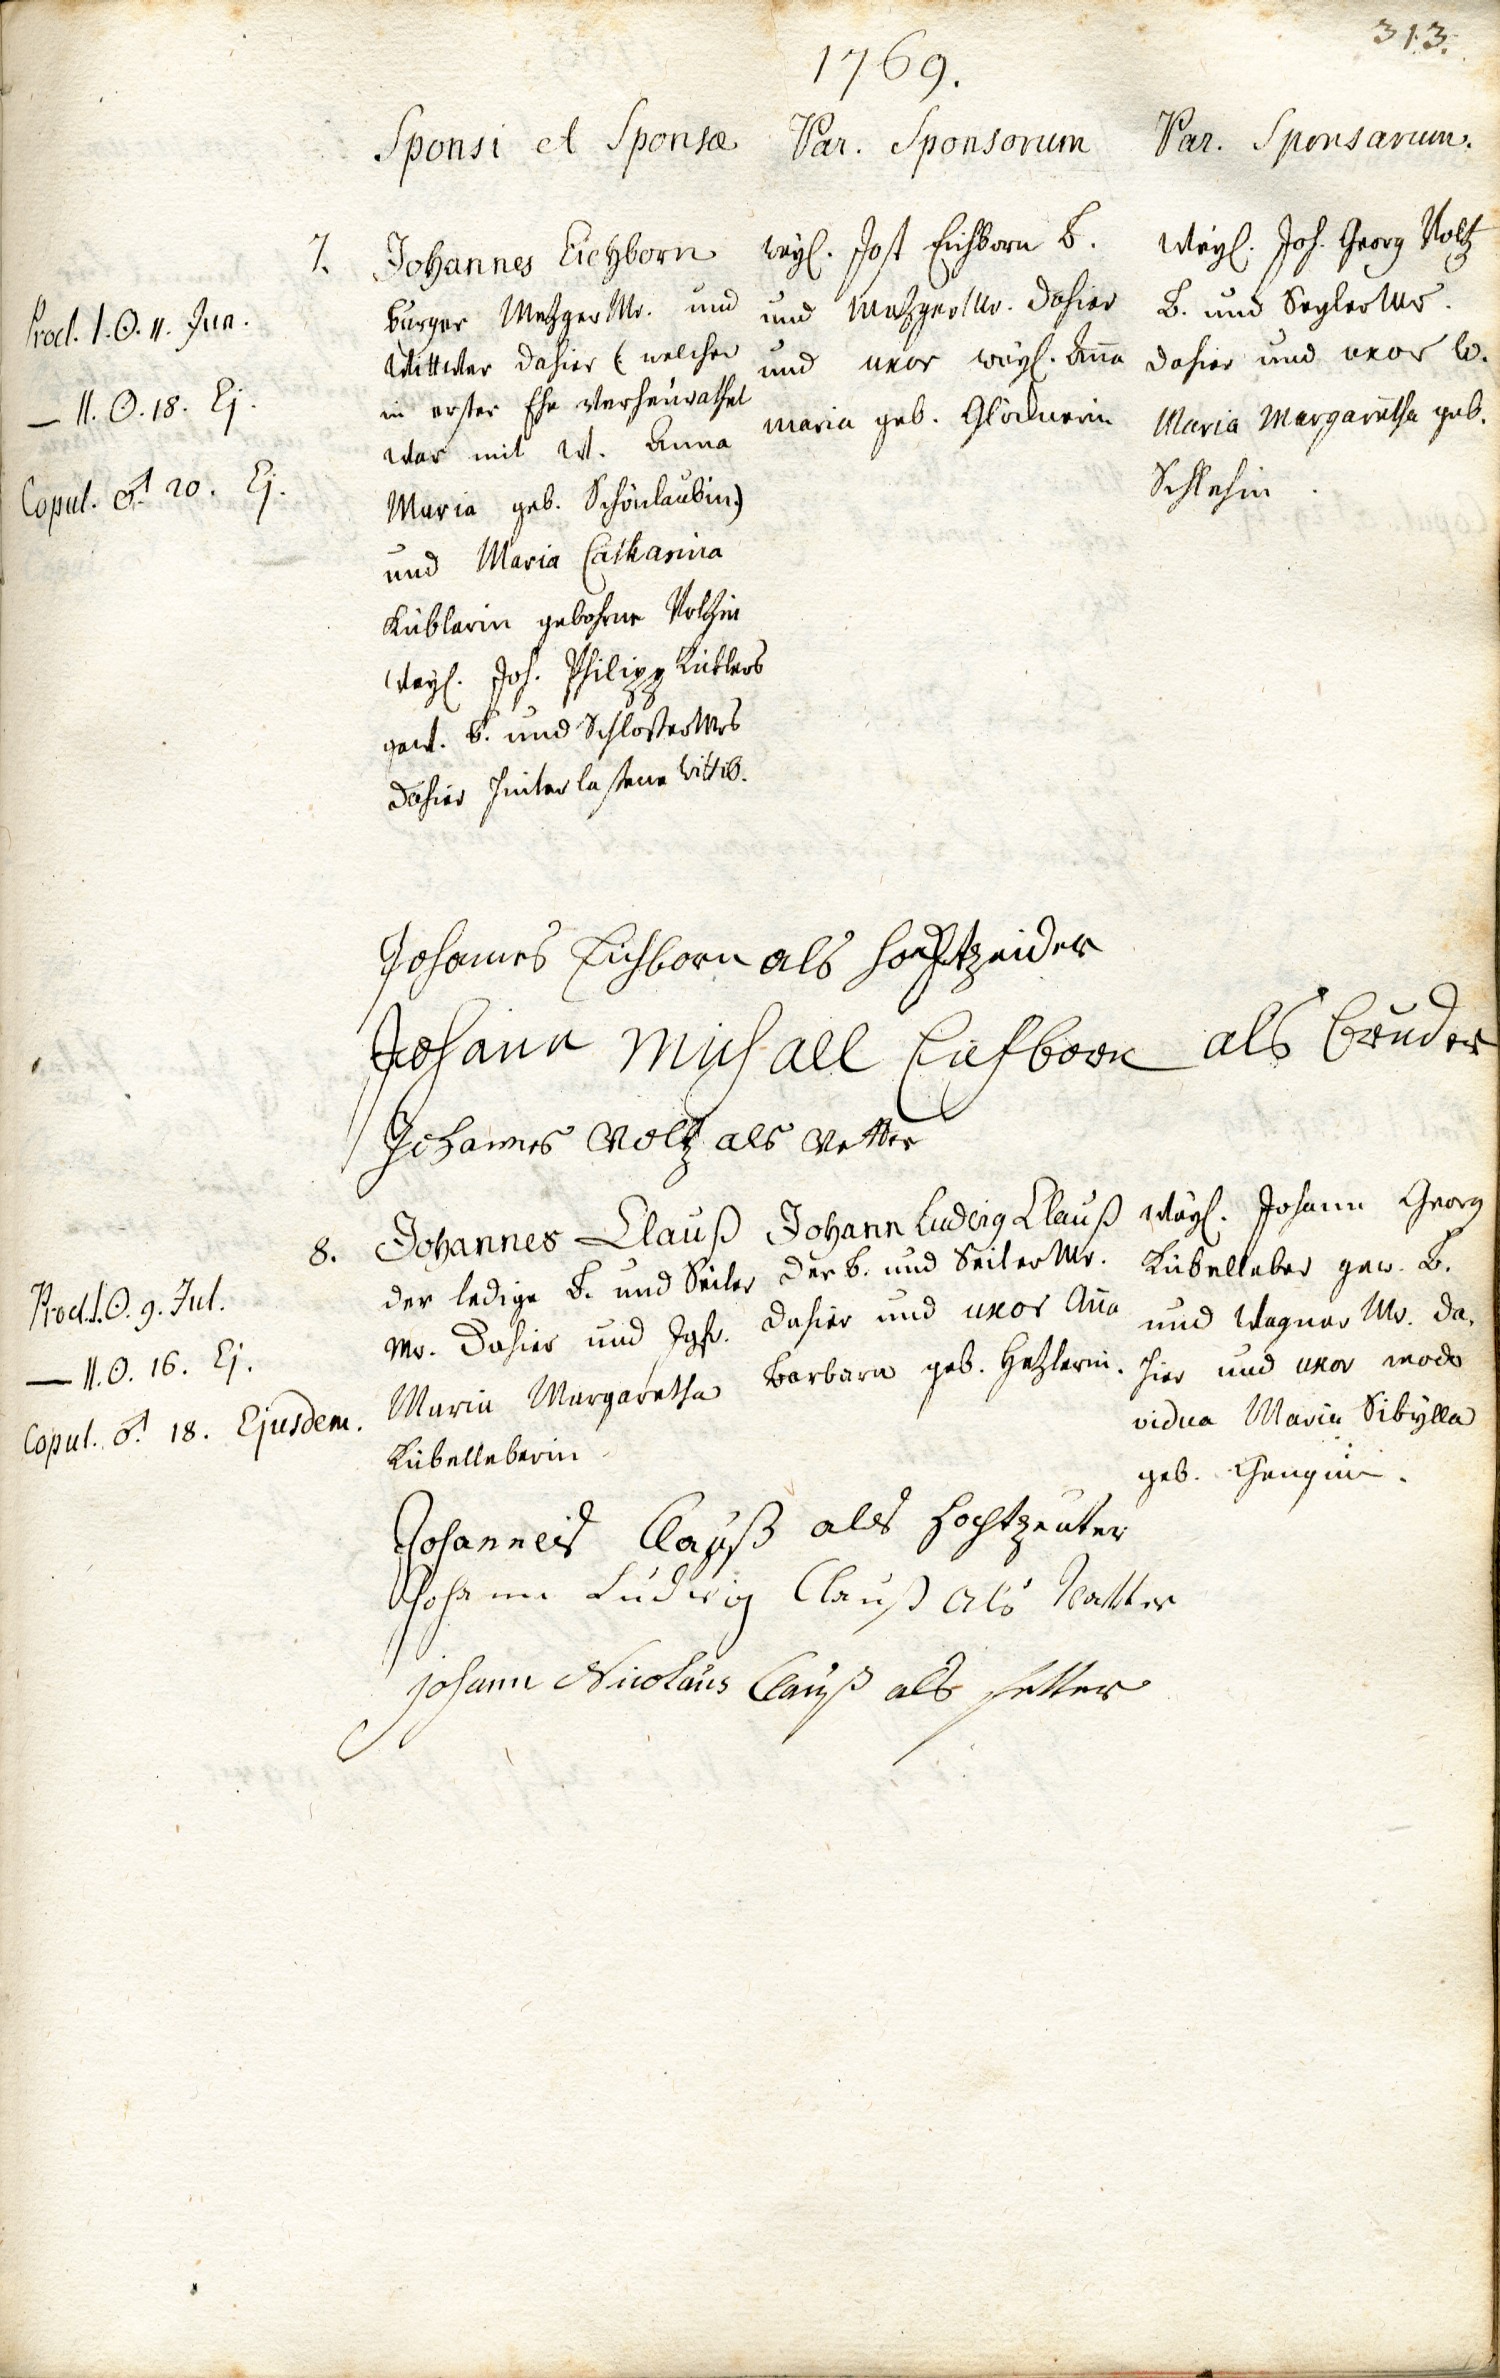 313.
1769.
Sponsi et Sponsæ
Par. Sponsorum
Par. Sponsarum.
Procl. I. ☉. 11. Jun.
— II. ☉. 18. Ej.
Copul. ♂ 20. Ej.
7.
Johannes Eichborn
burger Metzger Mr. und
Wittwer dahier (: welcher
in erster Ehe verheurathet
war mit w. Anna
Maria geb. Schönlaubin)
und Maria Catharina
Küblerin gebohrne Voltzin
weyl. Joh. Philipp Küblers
gew. b. und Schlosser Mrs
dahier hinterlassene Wittib.
weyl. Jost Eichborn B.
und Metzger Mr. dahier
und uxor weyl. Ana
Maria geb. Glöcknerin
Weyl. Joh. Georg Voltz
B. und Seyler Mr.
dahier und uxor w.
Maria Margaretha geb.
Schlehin.
Johannes Eichborn als hochtzeider
Johann Michall Eichborn als bruder
Johannes Voltz als Vetter
Procl. I. ☉. 9. Jul.
— II. ☉. 16. Ej.
Copul. ♂ 18. Ejusdem.
8.
Johannes Clauß
der ledige B. und Seiler
Mr. dahier und Jgfr.
Maria Margaretha
Kübelleberin
Johann Ludwig Clauß
der b. und Seiler Mr.
dahier und uxor Ana
Barbara geb. Hetzlerin.
Weyl. Johann Georg
Kübelleber gew. B.
und Wagner Mr. da,
hier und uxor modo
vidua Maria Sibylla
geb.
Johanneis Clauß als hochtzeuter
Johann Ludwig Clauß als Vatter
johann Nicolaus Clauß als fetter